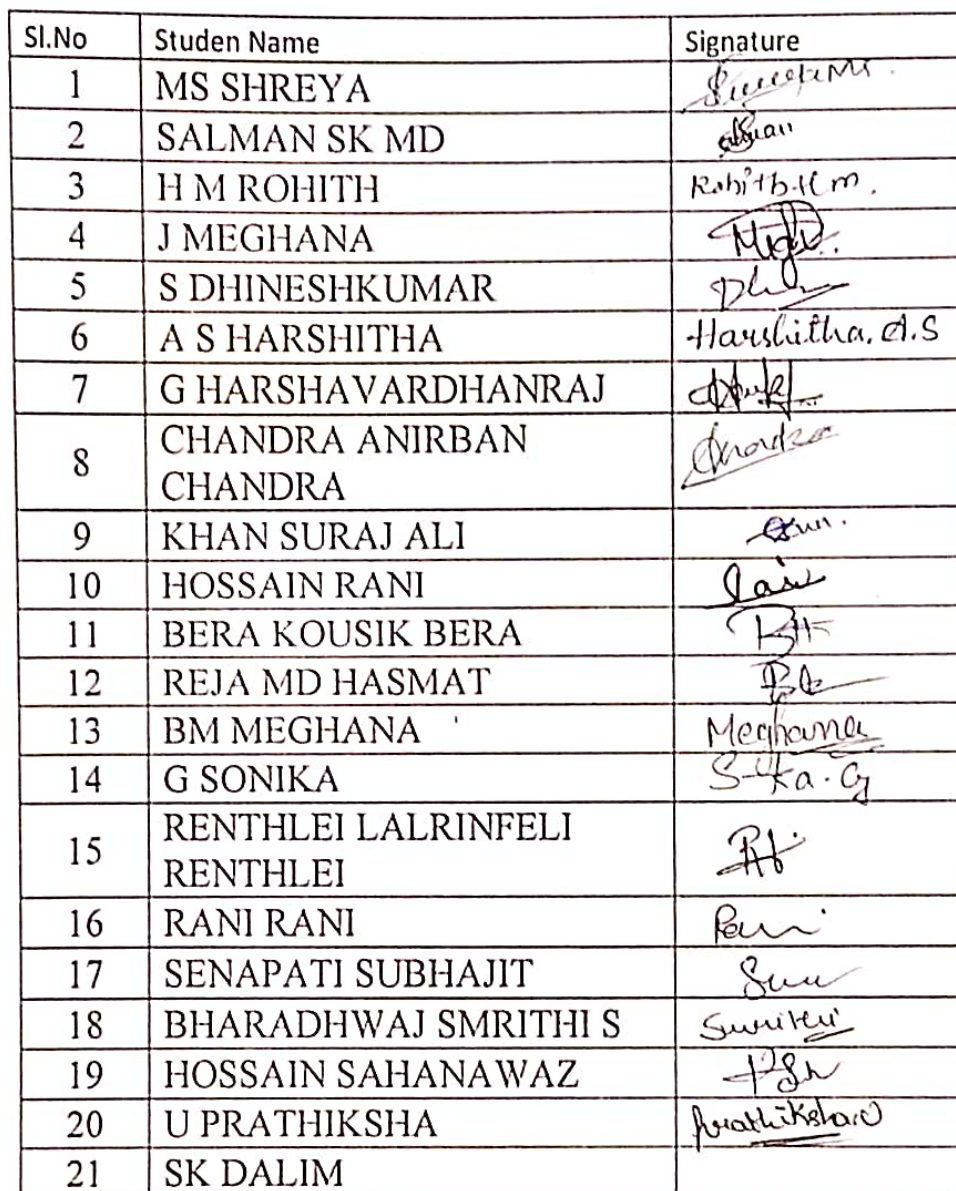 Sl.No Studen Name Signature
1 MS SHREYA
2 SALMAN SK MD
3 H M ROHITH Rohith.H m.
4 J MEGHANA
5 S DHINESHKUMAR
6 A S HARSHITHA Harshitha. A.S
7 G HARSHAVARDHANRAJ
8 CHANDRA ANIRBAN
CHANDRA
Chandra
9 KHAN SURAJ ALI
10 HOSSAIN RANI
11 BERA KOUSIK BERA
12 REJA MD HASMAT
13 BM MEGHANA Meghana
14 G SONIKA
15 RENTHLEI LALRINFELI
RENTHLEI
16 RANI RANI Rani
17 SENAPATI SUBHAJIT
18 BHARADHWAJ SMRITHI S Smrithi
19 HOSSAIN SAHANAWAZ
20 U PRATHIKSHA Prathiksha.U
21 SK DALIM